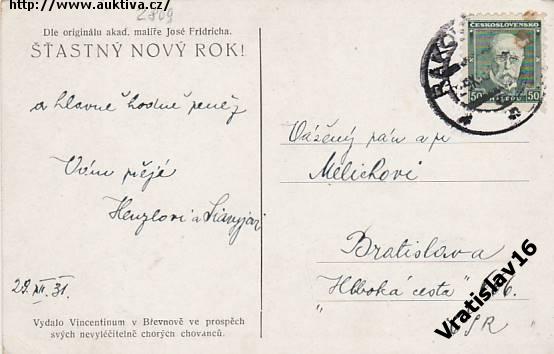 http://www.auktiva.cz/
2809
Dle originálu akad. malíře José Fridricha.
ŠŤASTNÝ NOVÝ ROK!
a hlavně hodně peněz
Vám přejé
Henzlovi a
29. XII. 31.
Vydalo Vincentinum v Břevnově ve prospěch
svých nevyléčitelně chorých chovanců.
ČESKOSLOVENSKO
50 50
RAKOV
Vážený pán a pí
Melichovi
Bratislava
"Hlboká cesta" 
ČSR
Vratislav16